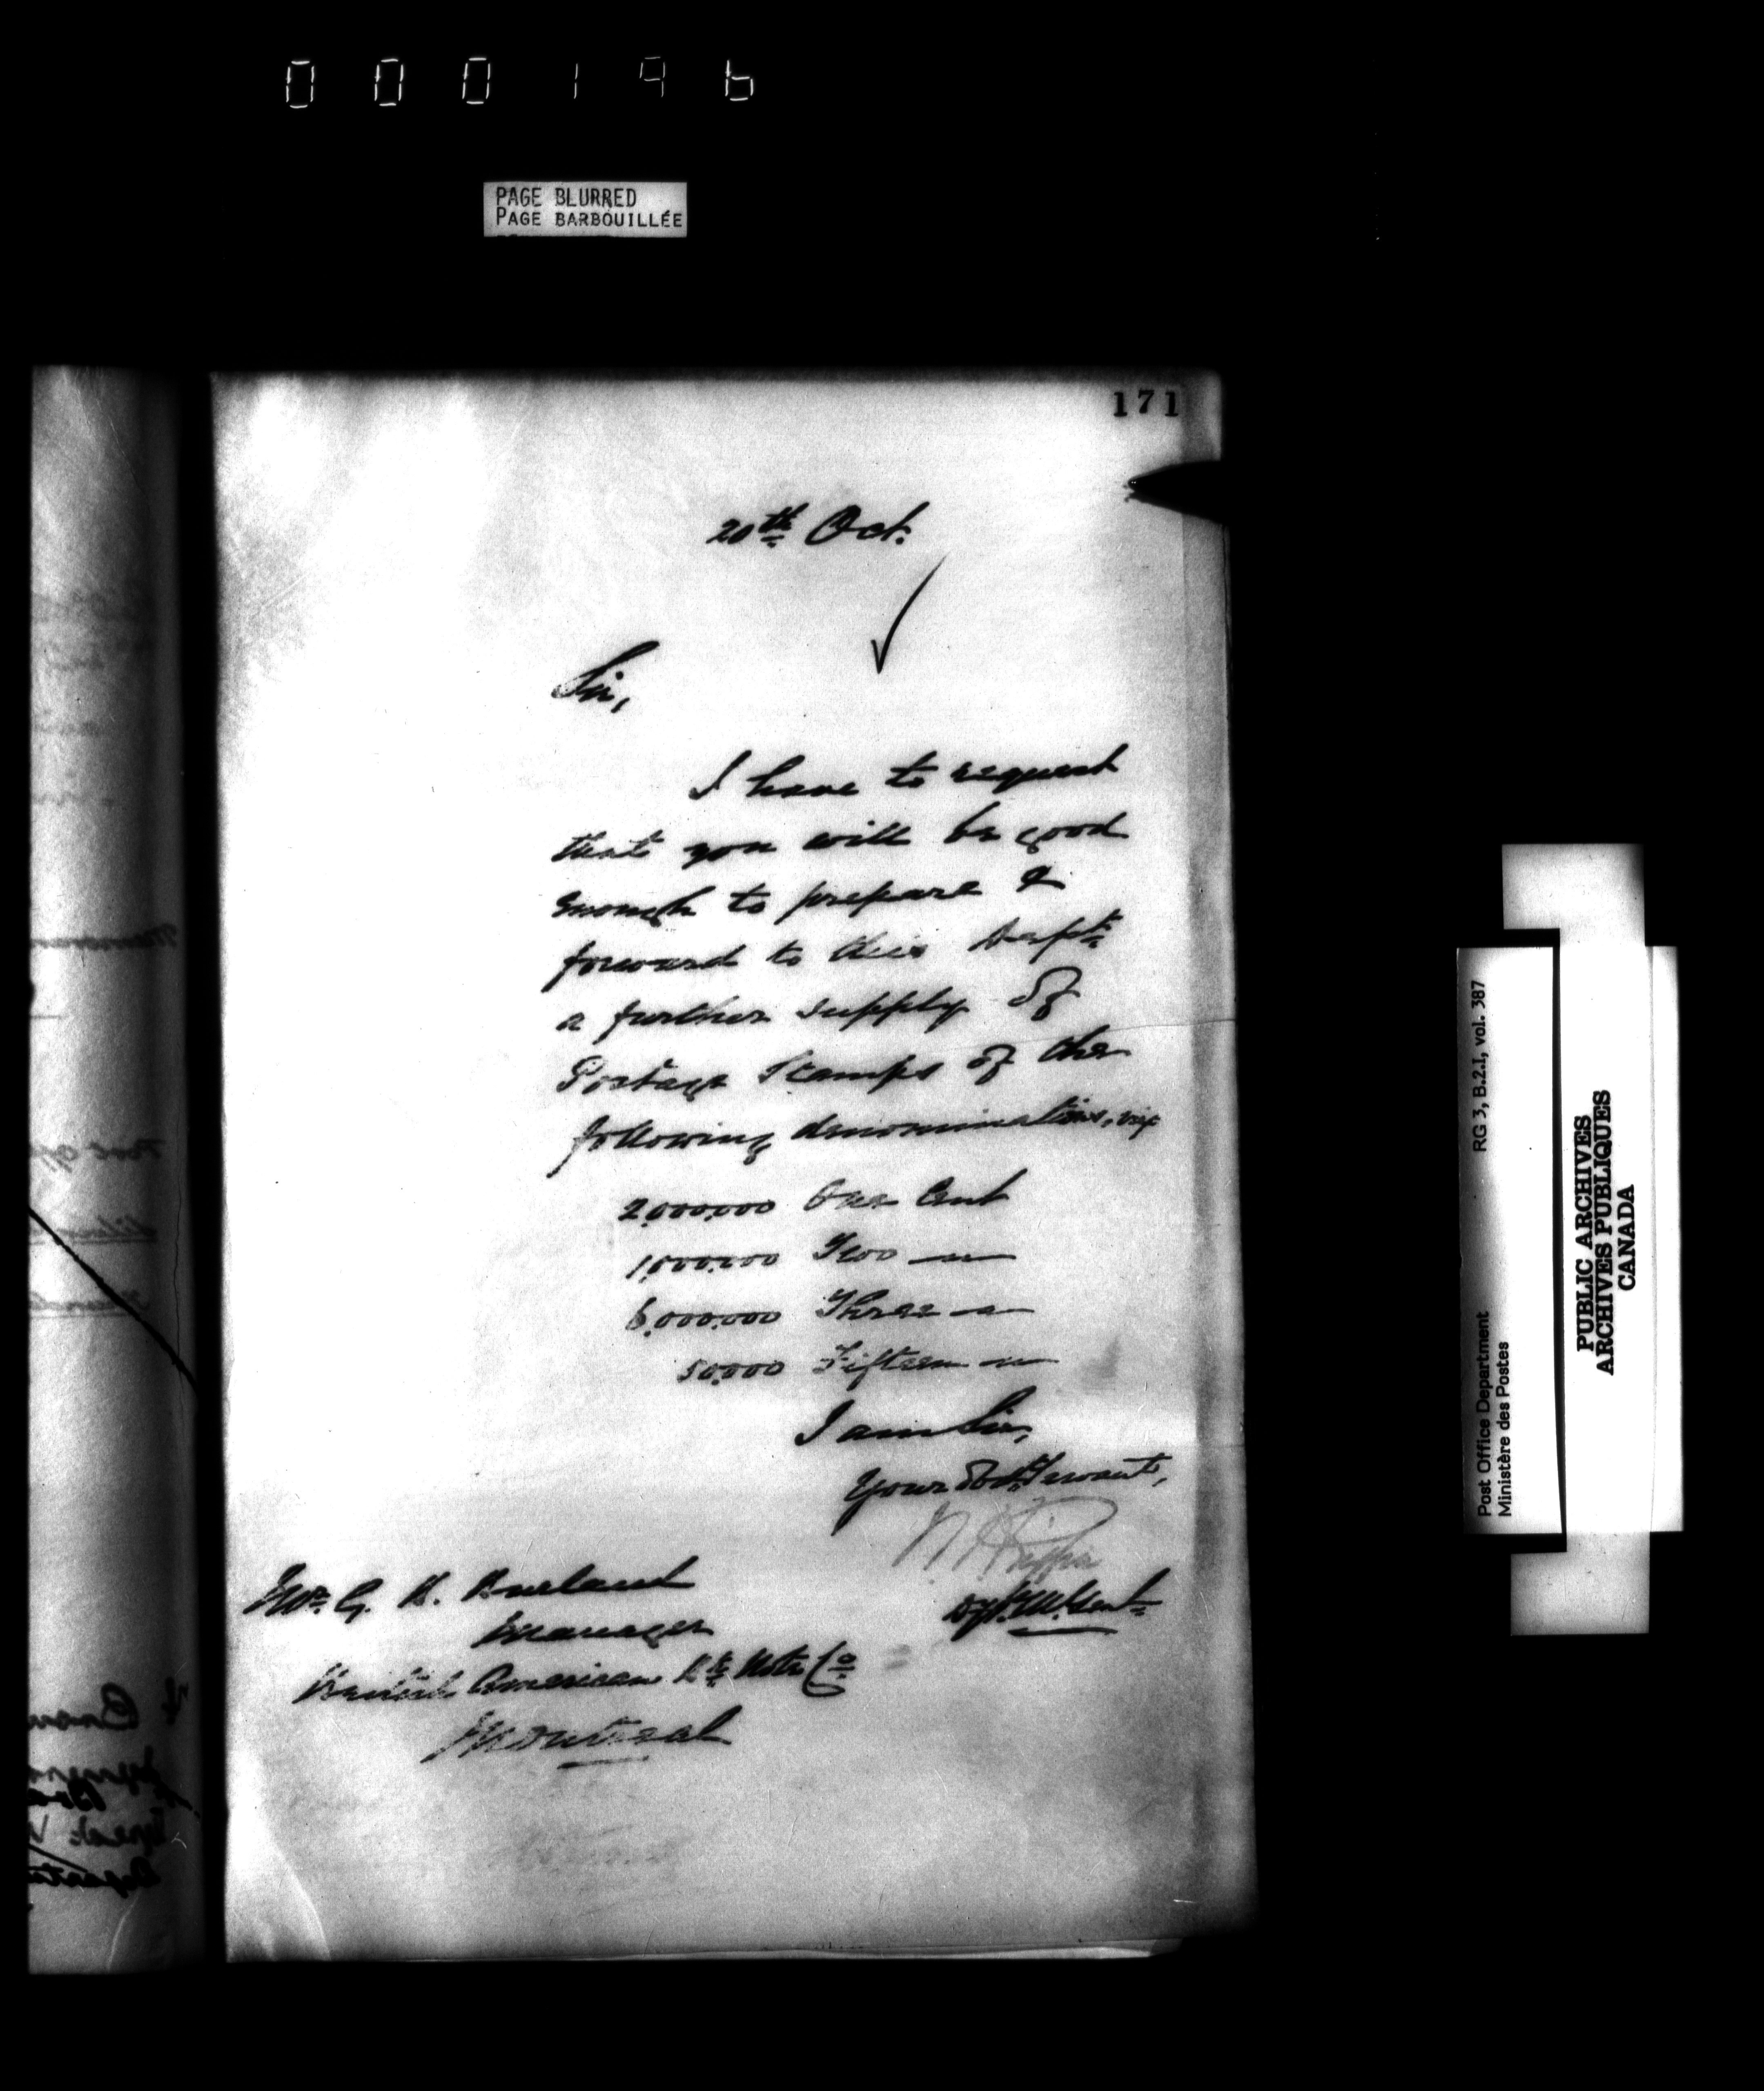 000196
PAGE BLURRED
PAGE BARBOUILLÉE
171
20th Oct.
Sir,
I have to request
that you will be good
enough to prepare &
forward to this Dept.
a further supply of
Postage Stamps of the
following denominations, viz
2,000,000 One Cent
1,000,000 Two "
6,000,000 Three "
50,000 Fifteen "
I am Sir,
Your Obt. Servant,
G. B. Burland
Manager
British American Bk Note Co.
Montreal
RG 3, B.2.1, vol. 387
Post Office Department
Ministère des Postes
PUBLIC ARCHIVES
ARCHIVES PUBLIQUES
CANADA